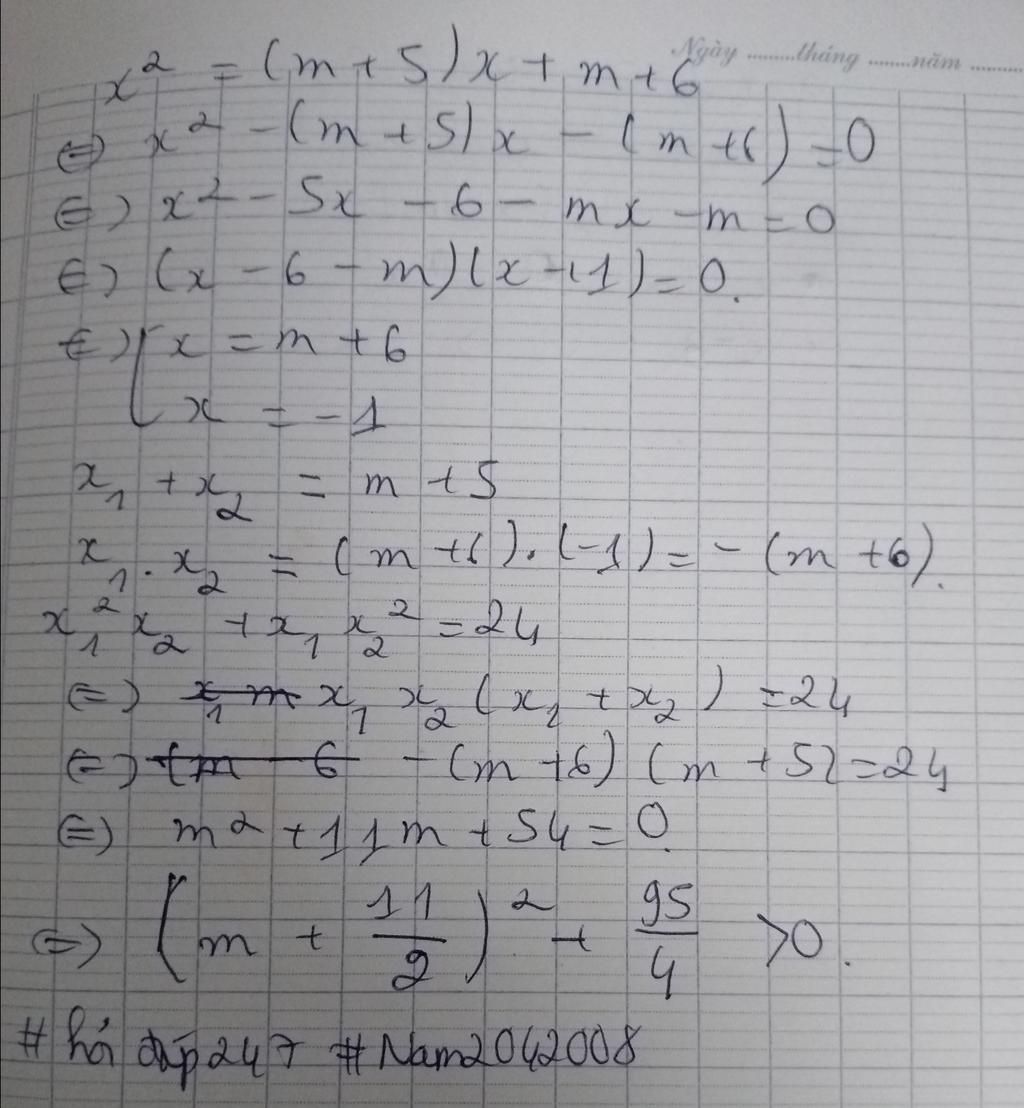 Ngày .........tháng ........năm ...........
x² = (m + 5)x + m + 6
⇔ x² - (m + 5)x - (m + 6) = 0
⇔ x² - 5x - 6 - mx - m = 0
⇔ (x - 6 - m)(x + 1) = 0.
⇔ [ x = m + 6
x = -1
x₁ + x₂ = m + 5
x₁ . x₂ = (m + 6) . (-1) = - (m + 6).
x₁² x₂ + x₁ x₂² = 24
⇔ x₁ x₂ (x₁ + x₂) = 24
⇔ - (m + 6) (m + 5) = 24
⇔ m² + 11m + 54 = 0.
⇔ (m + 11/2)² + 95/4 > 0.
# hỏi đáp 247 # Nam2042008